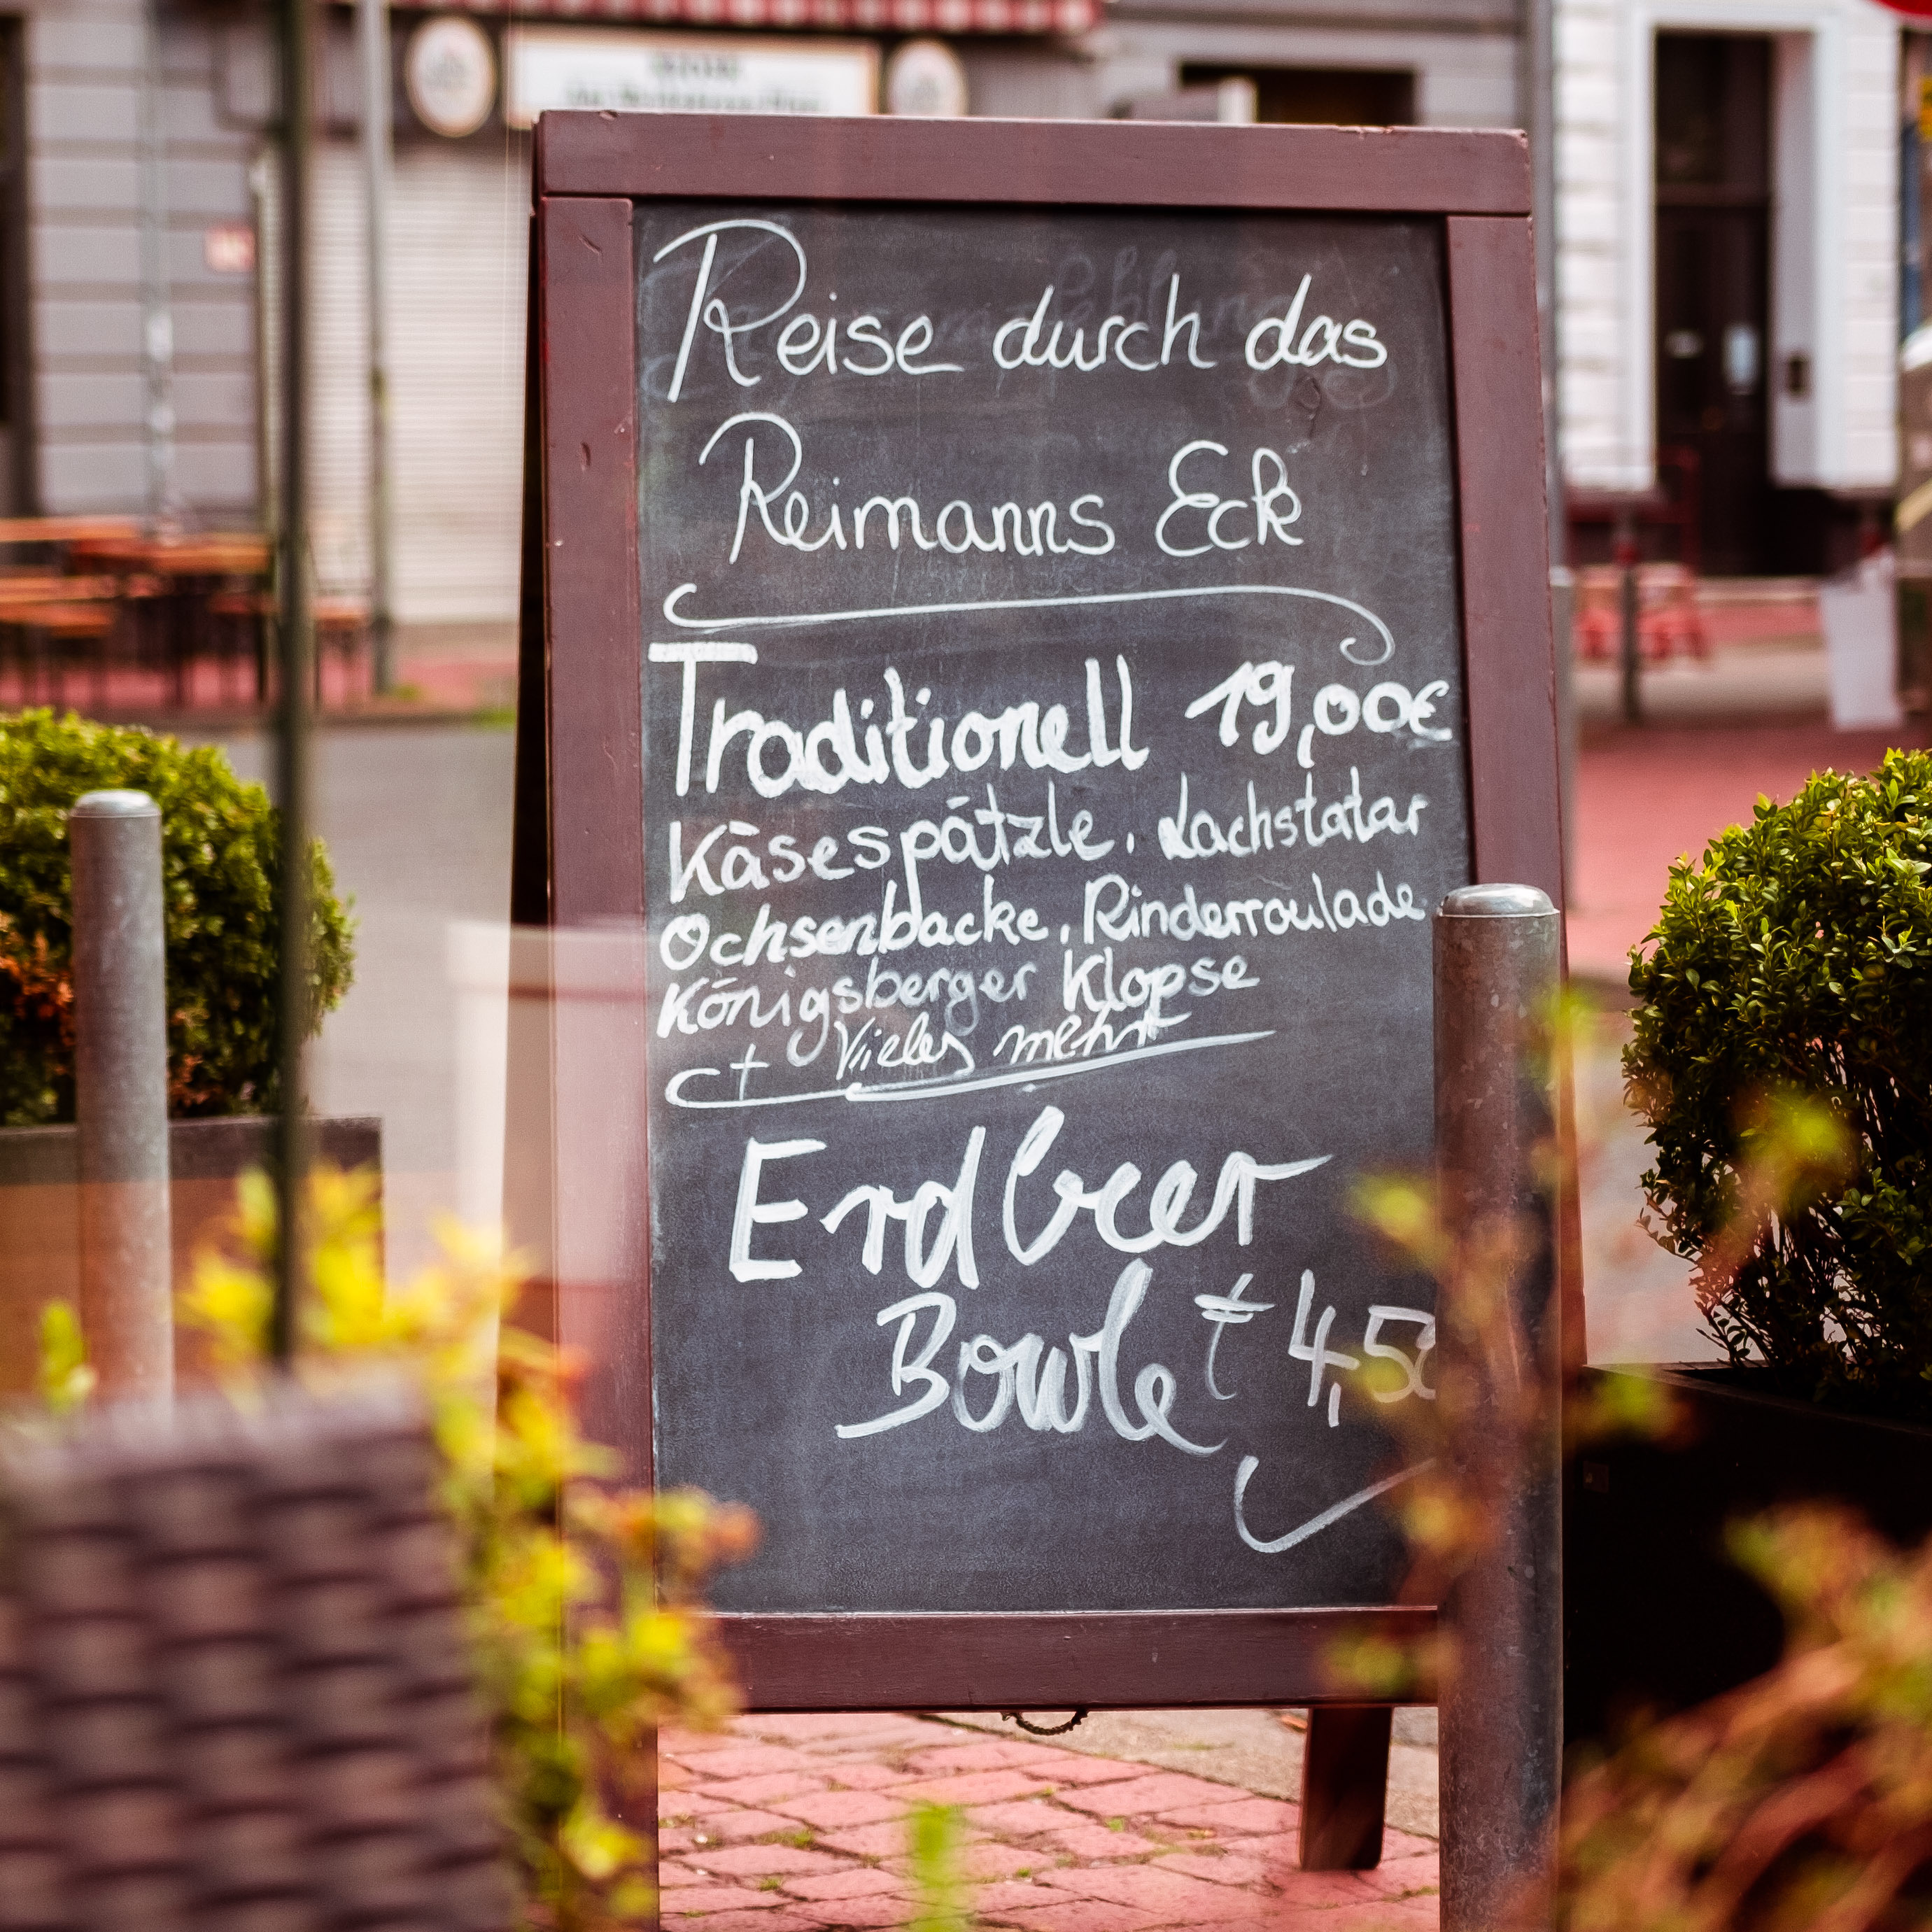 Reise durch das
Reimanns Eck
Traditionell 19,00€
Käsespätzle, Lachstatar
Ochsenbacke, Rinderroulade
Königsberger Klopse
+ Vieles mehr
Erdbeer
Bowle € 4,50